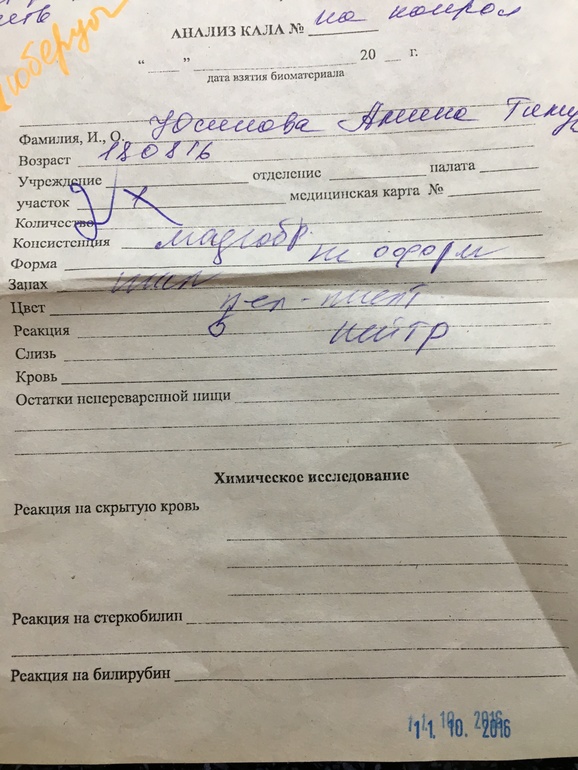 АНАЛИЗ КАЛА № на контрол
“ ” 20 г.
дата взятия биоматериала
Фамилия, И., О. Юсупова Амина Тиму
Возраст 180816
Учреждение отделение палата
участок медицинская карта №
Количество
Консистенция мазеобр.
Форма не оформ
Запах
Цвет жел-
Реакция нейтр
Слизь
Кровь
Остатки непереваренной пищи
Химическое исследование
Реакция на скрытую кровь
Реакция на стеркобилин
Реакция на билирубин
11. 10. 2016